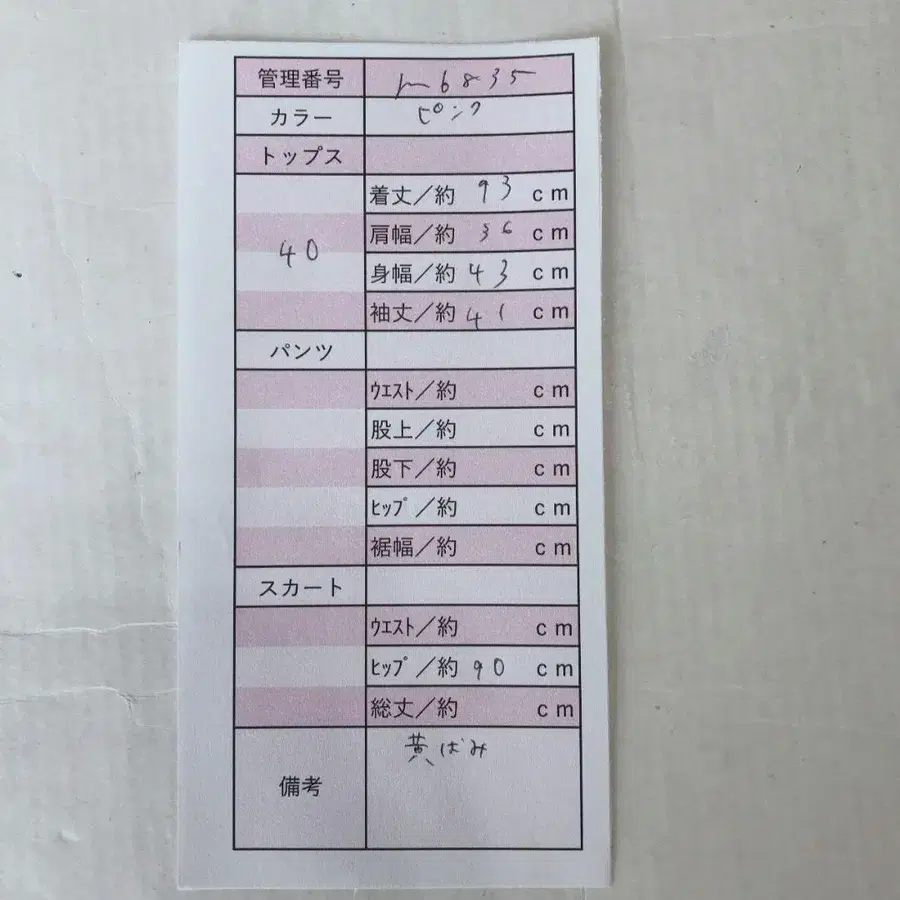 管理番号 m6835
カラー ピンク
トップス
40
着丈／約 93 cm
肩幅／約 36 cm
身幅／約 43 cm
袖丈／約 41 cm
パンツ
ｳｴｽﾄ／約 cm
股上／約 cm
股下／約 cm
ﾋｯﾌﾟ／約 cm
裾幅／約 cm
スカート
ｳｴｽﾄ／約 cm
ﾋｯﾌﾟ／約 90 cm
総丈／約 cm
備考 黄ばみ